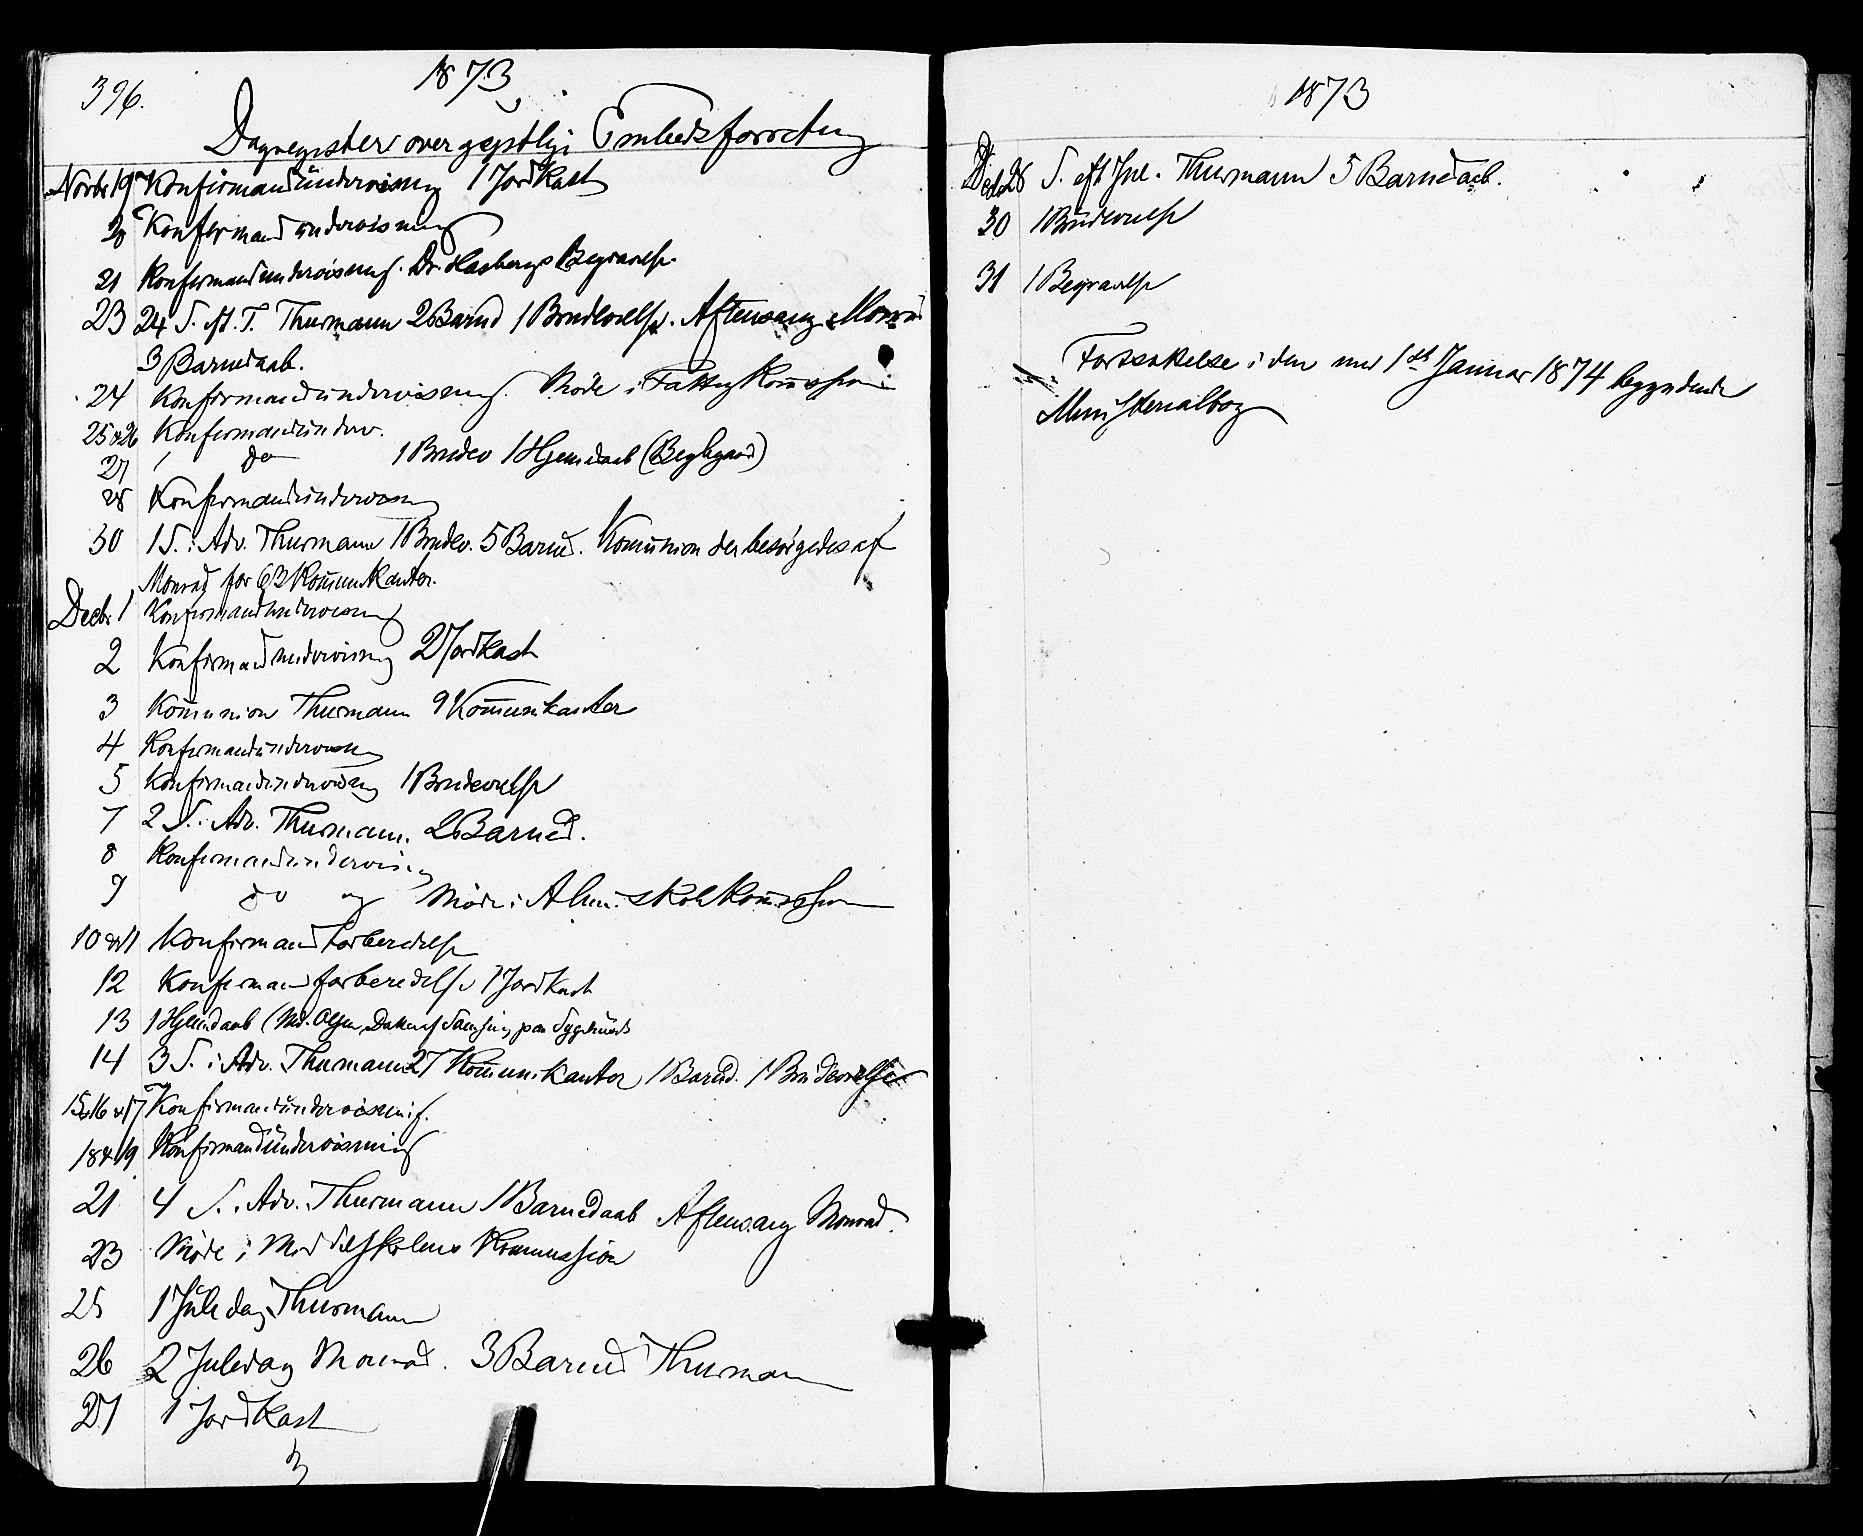 396.
1873
Dagregister over geistlige Embedsforretng
Novbr 19 Konfirmandundervisning 1 Jordkast
20 Konfirmandundervisning
21 Konfirmandundervisning. Dr. Begravelse
23 24 S. eft. T. Thurmann 2 Barned 1 Brudevielse. Aftensang Monrad
3 Barnedaab.
24 Konfirmandundervisning. Møde i Fattigkommission
25 & 26 Konfirmandunderv.
27 do 1 Brudev 1 Hjemdaab
28 Konfirmandundervisn
30 1 S. i Adv. Thurmann 1 Brudev. 5 Barned. Kommunion der besørgedes af
Monrad for 63 Kommunikanter.
Decbr 1 Konfirmandundervisning
2 Konfirmandundervisning 2 Jordkast
3 Kommunion Thurmann 9 Kommunikanter
4 Konfirmandundervisn
5 Konfirmandundervisning 1 Brudevielse
7 2 S. i Adv. Thurmann. 2 Barned.
8 Konfirmandundervisning
9 do og Møde i Alm. Skolekommission
10 & 11 Konfirmandforberedelse
12 Konfirmandforberedelse 1 Jordkast
13 1 Hjemdaab (Md. Olsen, paa Sygehuset
14 3 S. i Adv. Thurmann 27 Kommunikanter 1 Barned. 1 Brudevielse
15, 16 & 17 Konfirmandundervisning.
18 & 19 Konfirmandundervisning
21 4 S. i Adv. Thurmann 1 Barnedaab Aftensang Monrad.
23 Møde i Middelskolens Kommission
25 1 Juledag Thurmann
26 2 Juledag Monrad. 3 Barned Thurmann
27 1 Jordkast
1873
Dcb 28 S. eft Jul. Thurmann 5 Barnedaab.
30 1 Brudevielse
31 1 Begravelse
Fortsættelse i den med 1st Januar 1874 begyndende
Ministerialbog